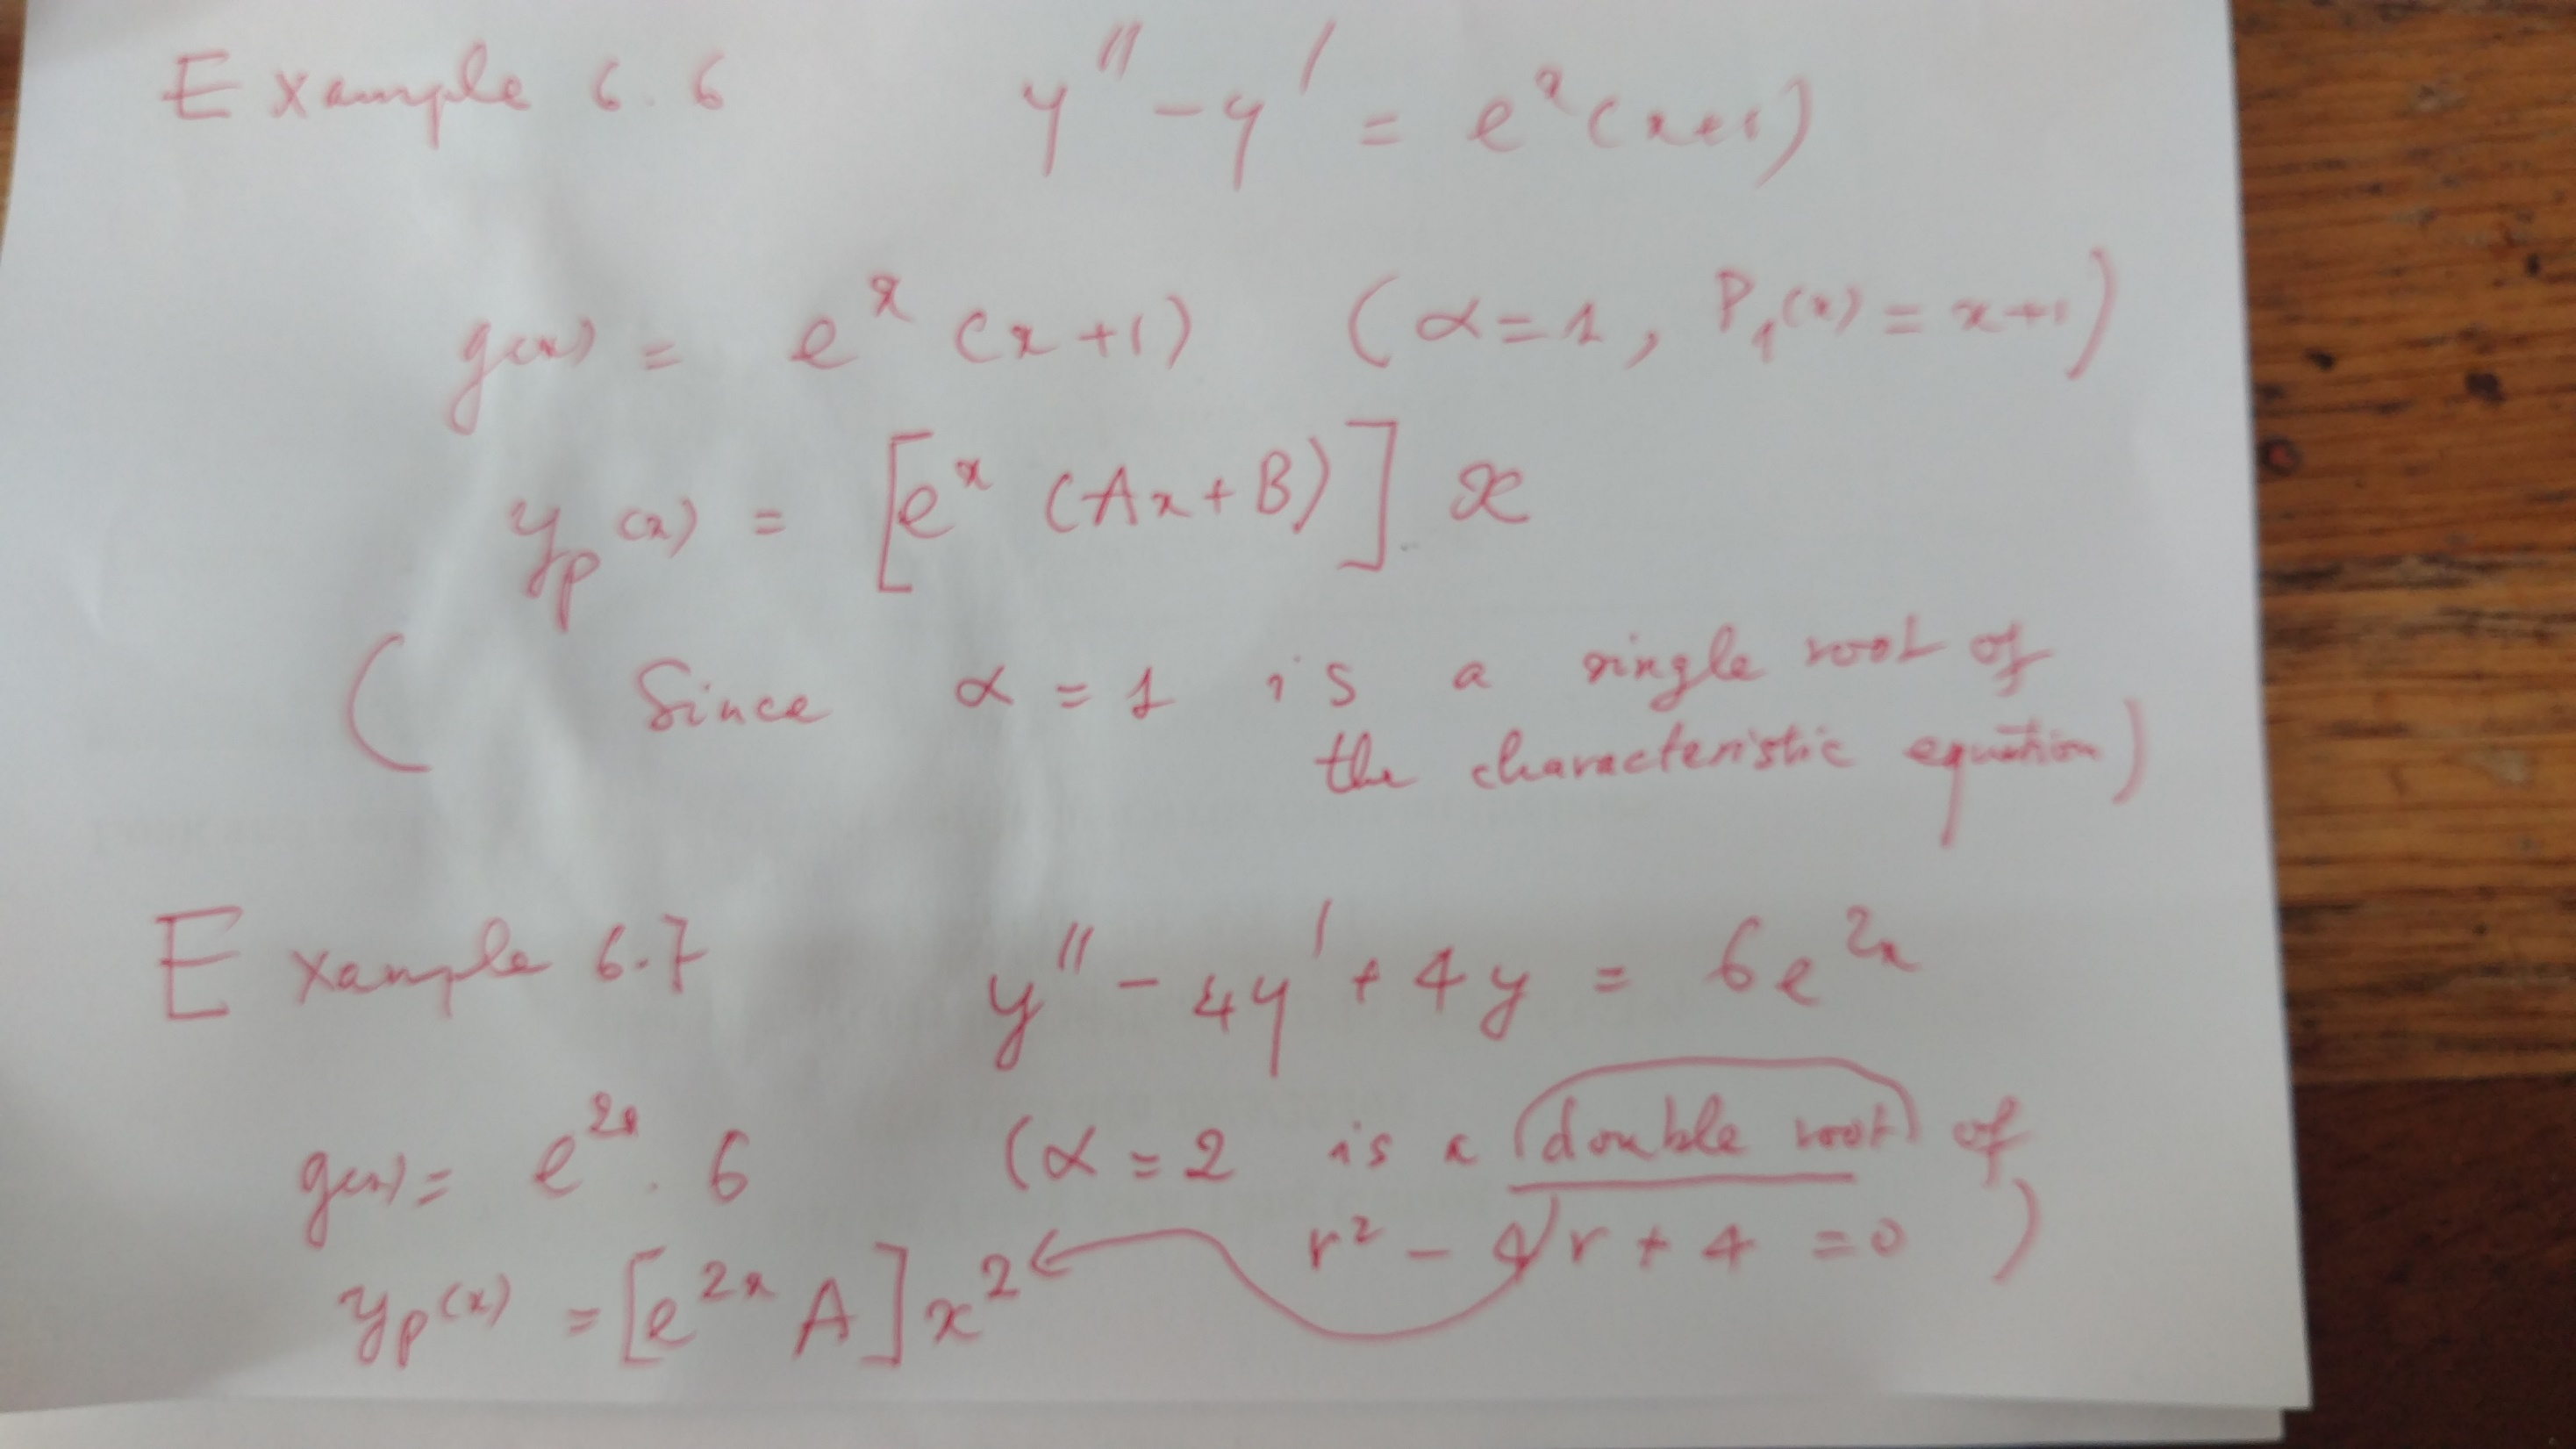 Example 6.6 y'' - y' = e^x (x+1)
g(x) = e^x (x+1) (α=1, P₁(x) = x+1)
y_p(x) = [e^x (Ax+B)] x
( Since α = 1 is a single root of
the characteristic equation)
Example 6.7 y'' - 4y' + 4y = 6e^{2x}
g(x) = e^{2x} . 6 (α = 2 is a double root of
r² - 4r + 4 = 0 )
y_p(x) = [e^{2x} A] x²